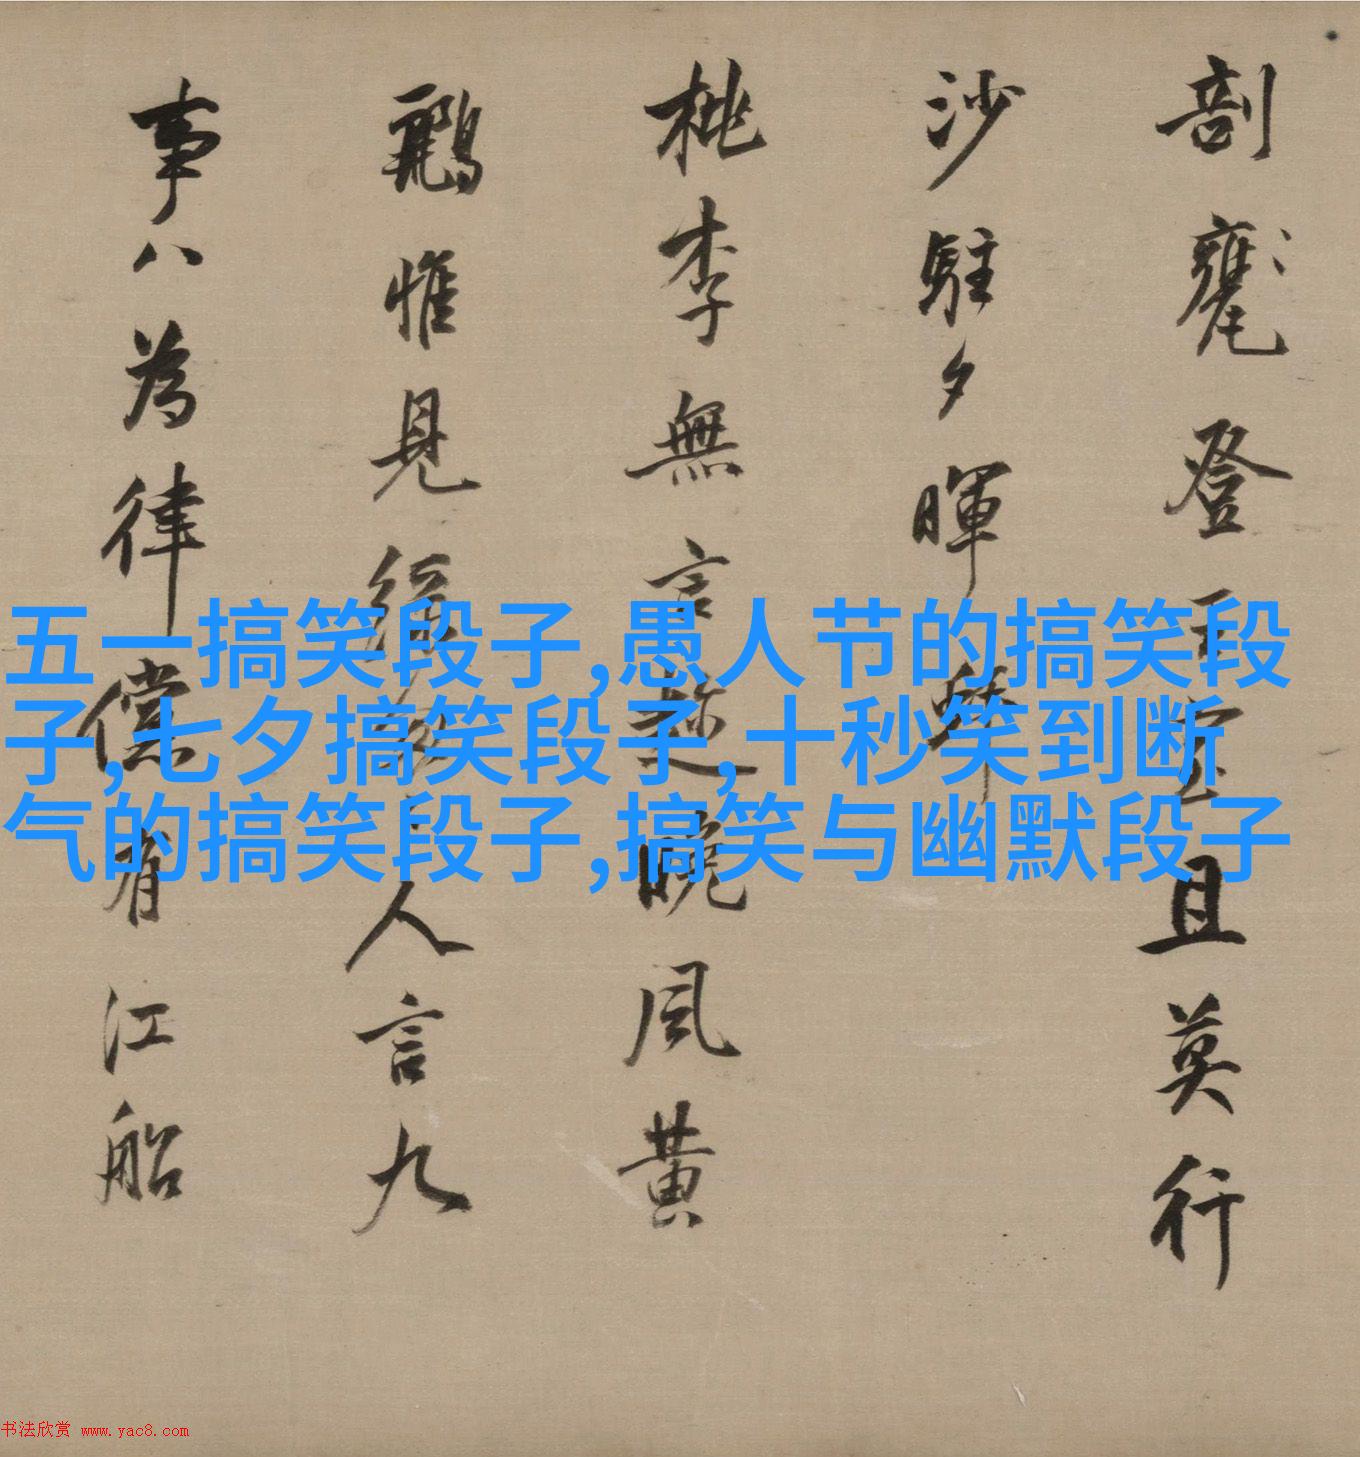 剖甕登王室且莫行
沙駐夕暉
桃李無言晚風黃
鸝惟見綠人言九
事八為律儻有江船
五一搞笑段子,愚人节的搞笑段
子,七夕搞笑段子,十秒笑到断
气的搞笑段子,搞笑与幽默段子
书法欣赏 www.yac8.com